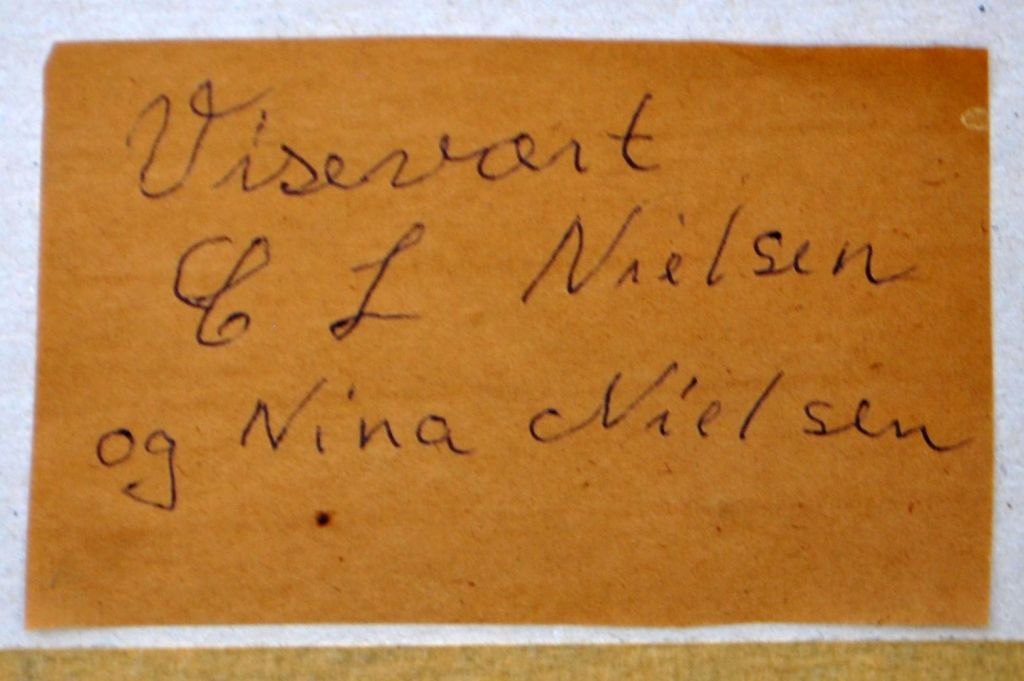 Visevært
E L Nielsen
og Nina Nielsen